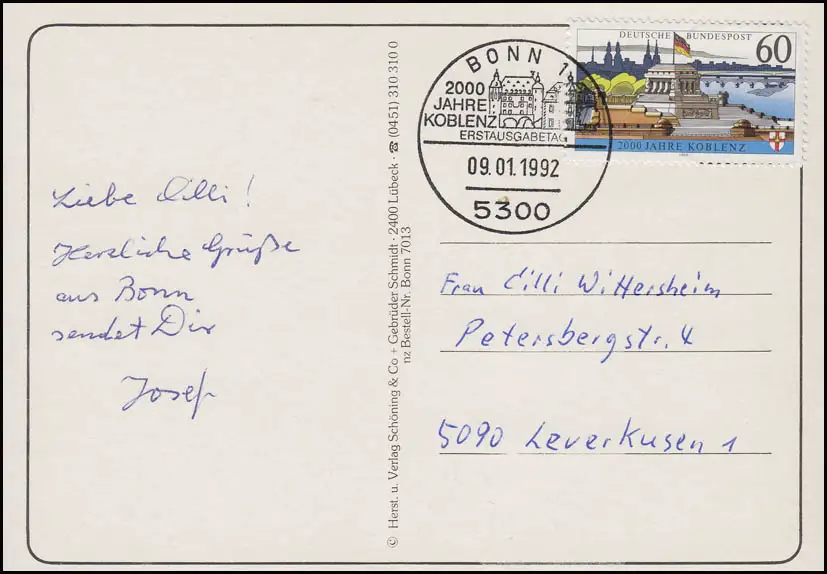 Liebe Cilli!
Herzliche Grüße
aus Bonn
sendet Dir
Josef
© Herst. u. Verlag Schöning & Co + Gebrüder Schmidt · 2400 Lübeck · ☎ (0451) 310 310 0
nz Bestell-Nr. Bonn 7013
BONN 1
2000
JAHRE
KOBLENZ
ERSTAUSGABETAG
09.01.1992
5300
DEUTSCHE BUNDESPOST
60
2000 JAHRE KOBLENZ
Frau Cilli Wittersheim
Petersbergstr. 4
5090 Leverkusen 1